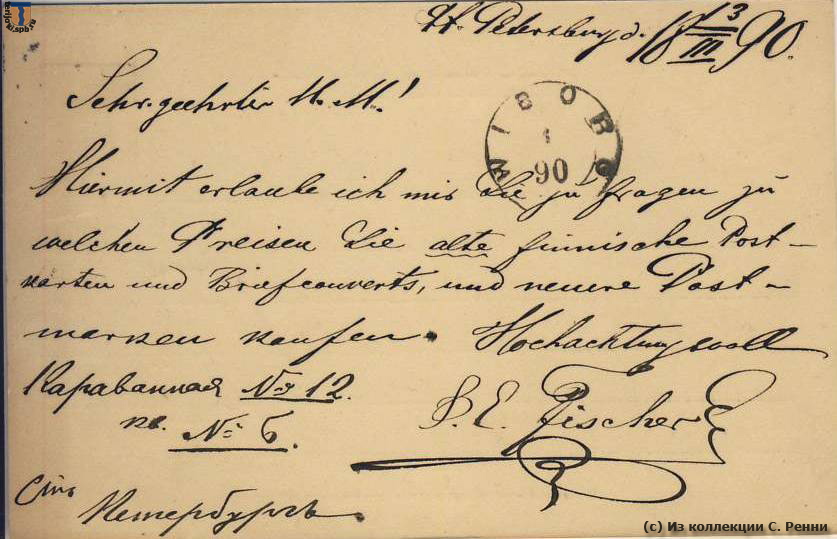 St. Petersburg d. 18 13/III 90.
Sehr geehrter H. M!
WIBORG
1
90
Hiermit erlaube ich mir Sie zu fragen zu
welchen Preisen Sie alte finnische Post-
karten und Briefcouverts, und neuere Post-
marken kaufen. Hochachtungsvoll
Караванная № 12.
кв. № 6.
Fischer
Петербургъ
(c) Из коллекции С. Ренни